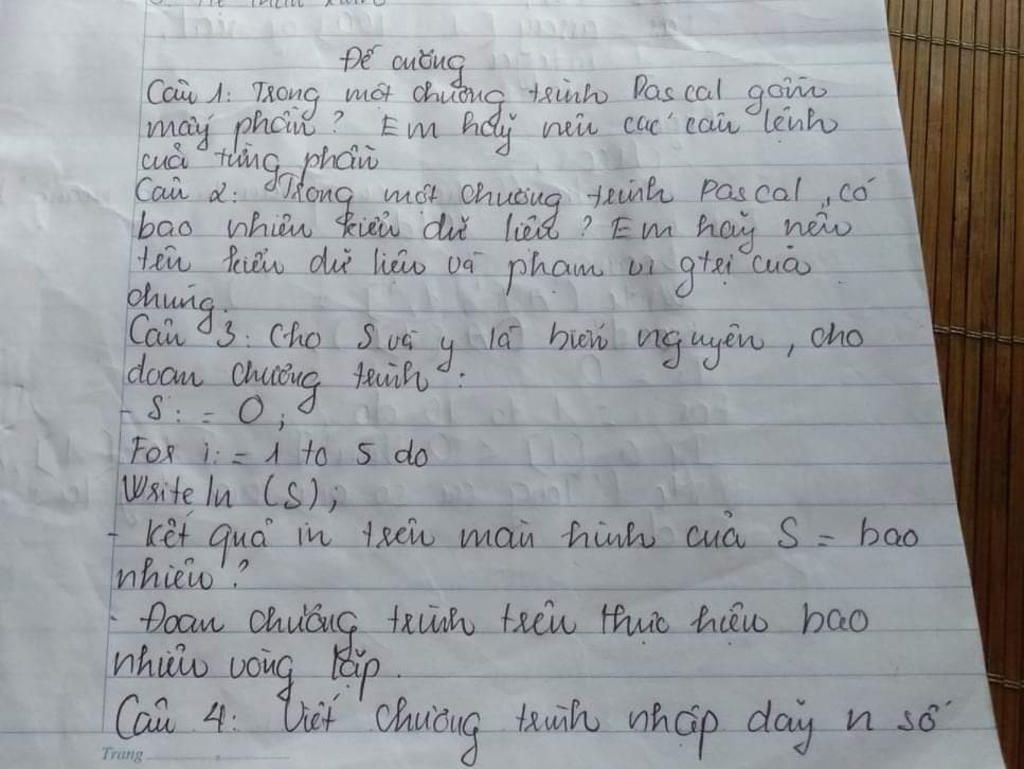 Đề cương
Câu 1: Trong một chương trình Pascal gồm
mấy phần? Em hãy nêu các câu lệnh
của từng phần
Câu 2: Trong một chương trình Pascal, có
bao nhiêu kiểu dữ liệu? Em hãy nêu
tên kiểu dữ liệu và phạm vi gtrị của
chúng.
Câu 3: Cho S và y là biến nguyên, cho
đoạn chương trình:
- S: = 0;
For i: = 1 to 5 do
Writeln (S);
- Kết quả in trên màn hình của S = bao
nhiêu?
- Đoạn chương trình trên thực hiện bao
nhiêu vòng lặp.
Câu 4: Viết chương trình nhập dãy n số
Trang